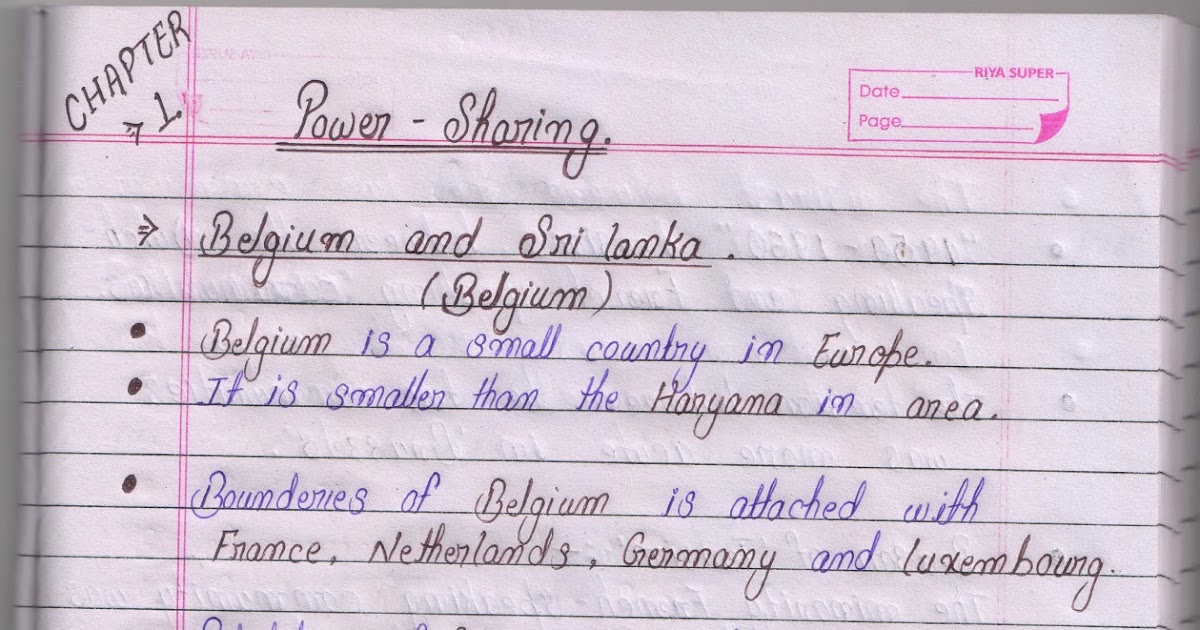 CHAPTER
⇒ 1.
Power - Sharing.
RIYA SUPER
Date
Page
⇒ Belgium and Sri lanka.
(Belgium)
• Belgium is a small country in Europe.
• It is smaller than the Haryana in area.
• Bounderies of Belgium is attached with
France, Netherlands, Germany and luxembourg.